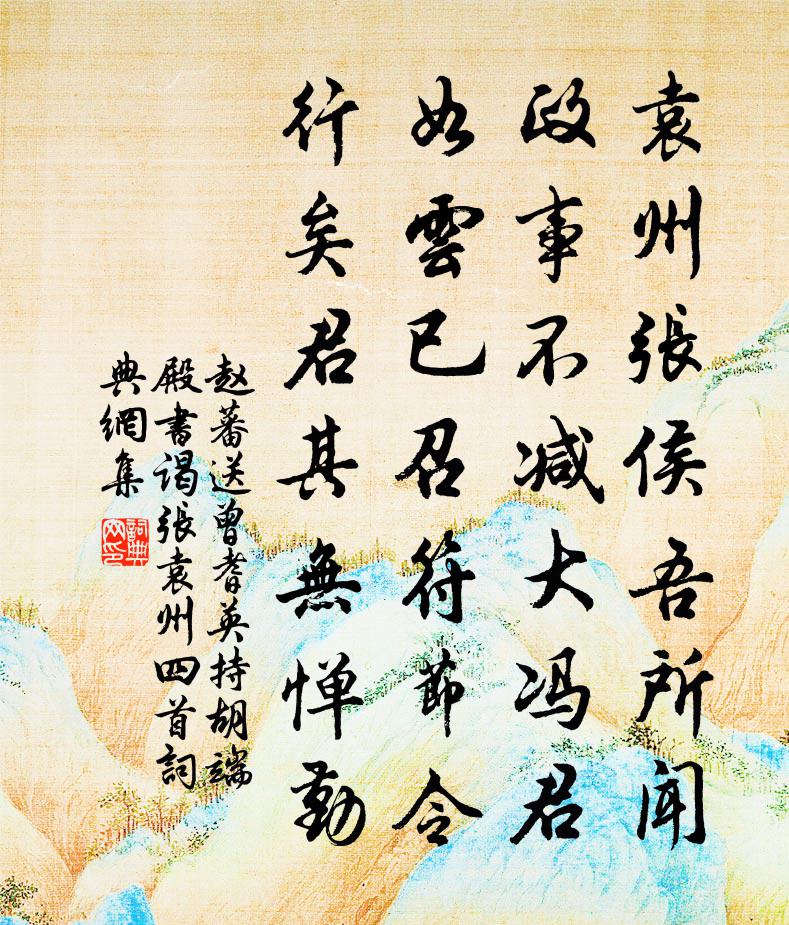 袁州張侯吾所聞
政事不減大冯君
如雲已召符節令
行矣君其無惮勤
赵蕃送曾耆英持胡端
殿書谒张袁州四首詞
典網集
詞典
网印